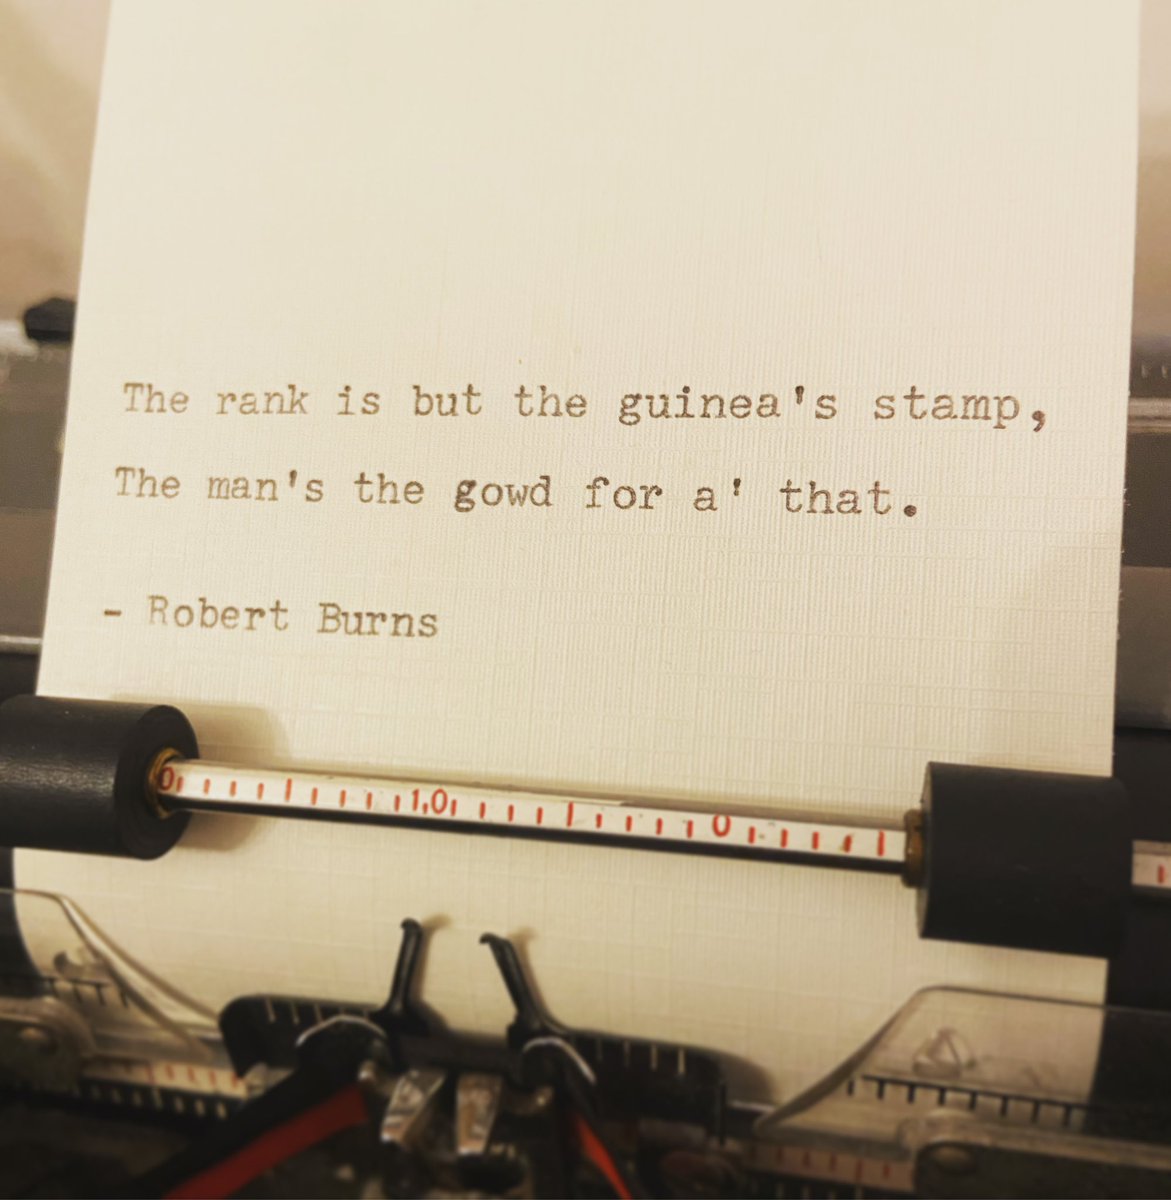 The rank is but the guinea's stamp,
The man's the gowd for a' that.
- Robert Burns
0 10 0